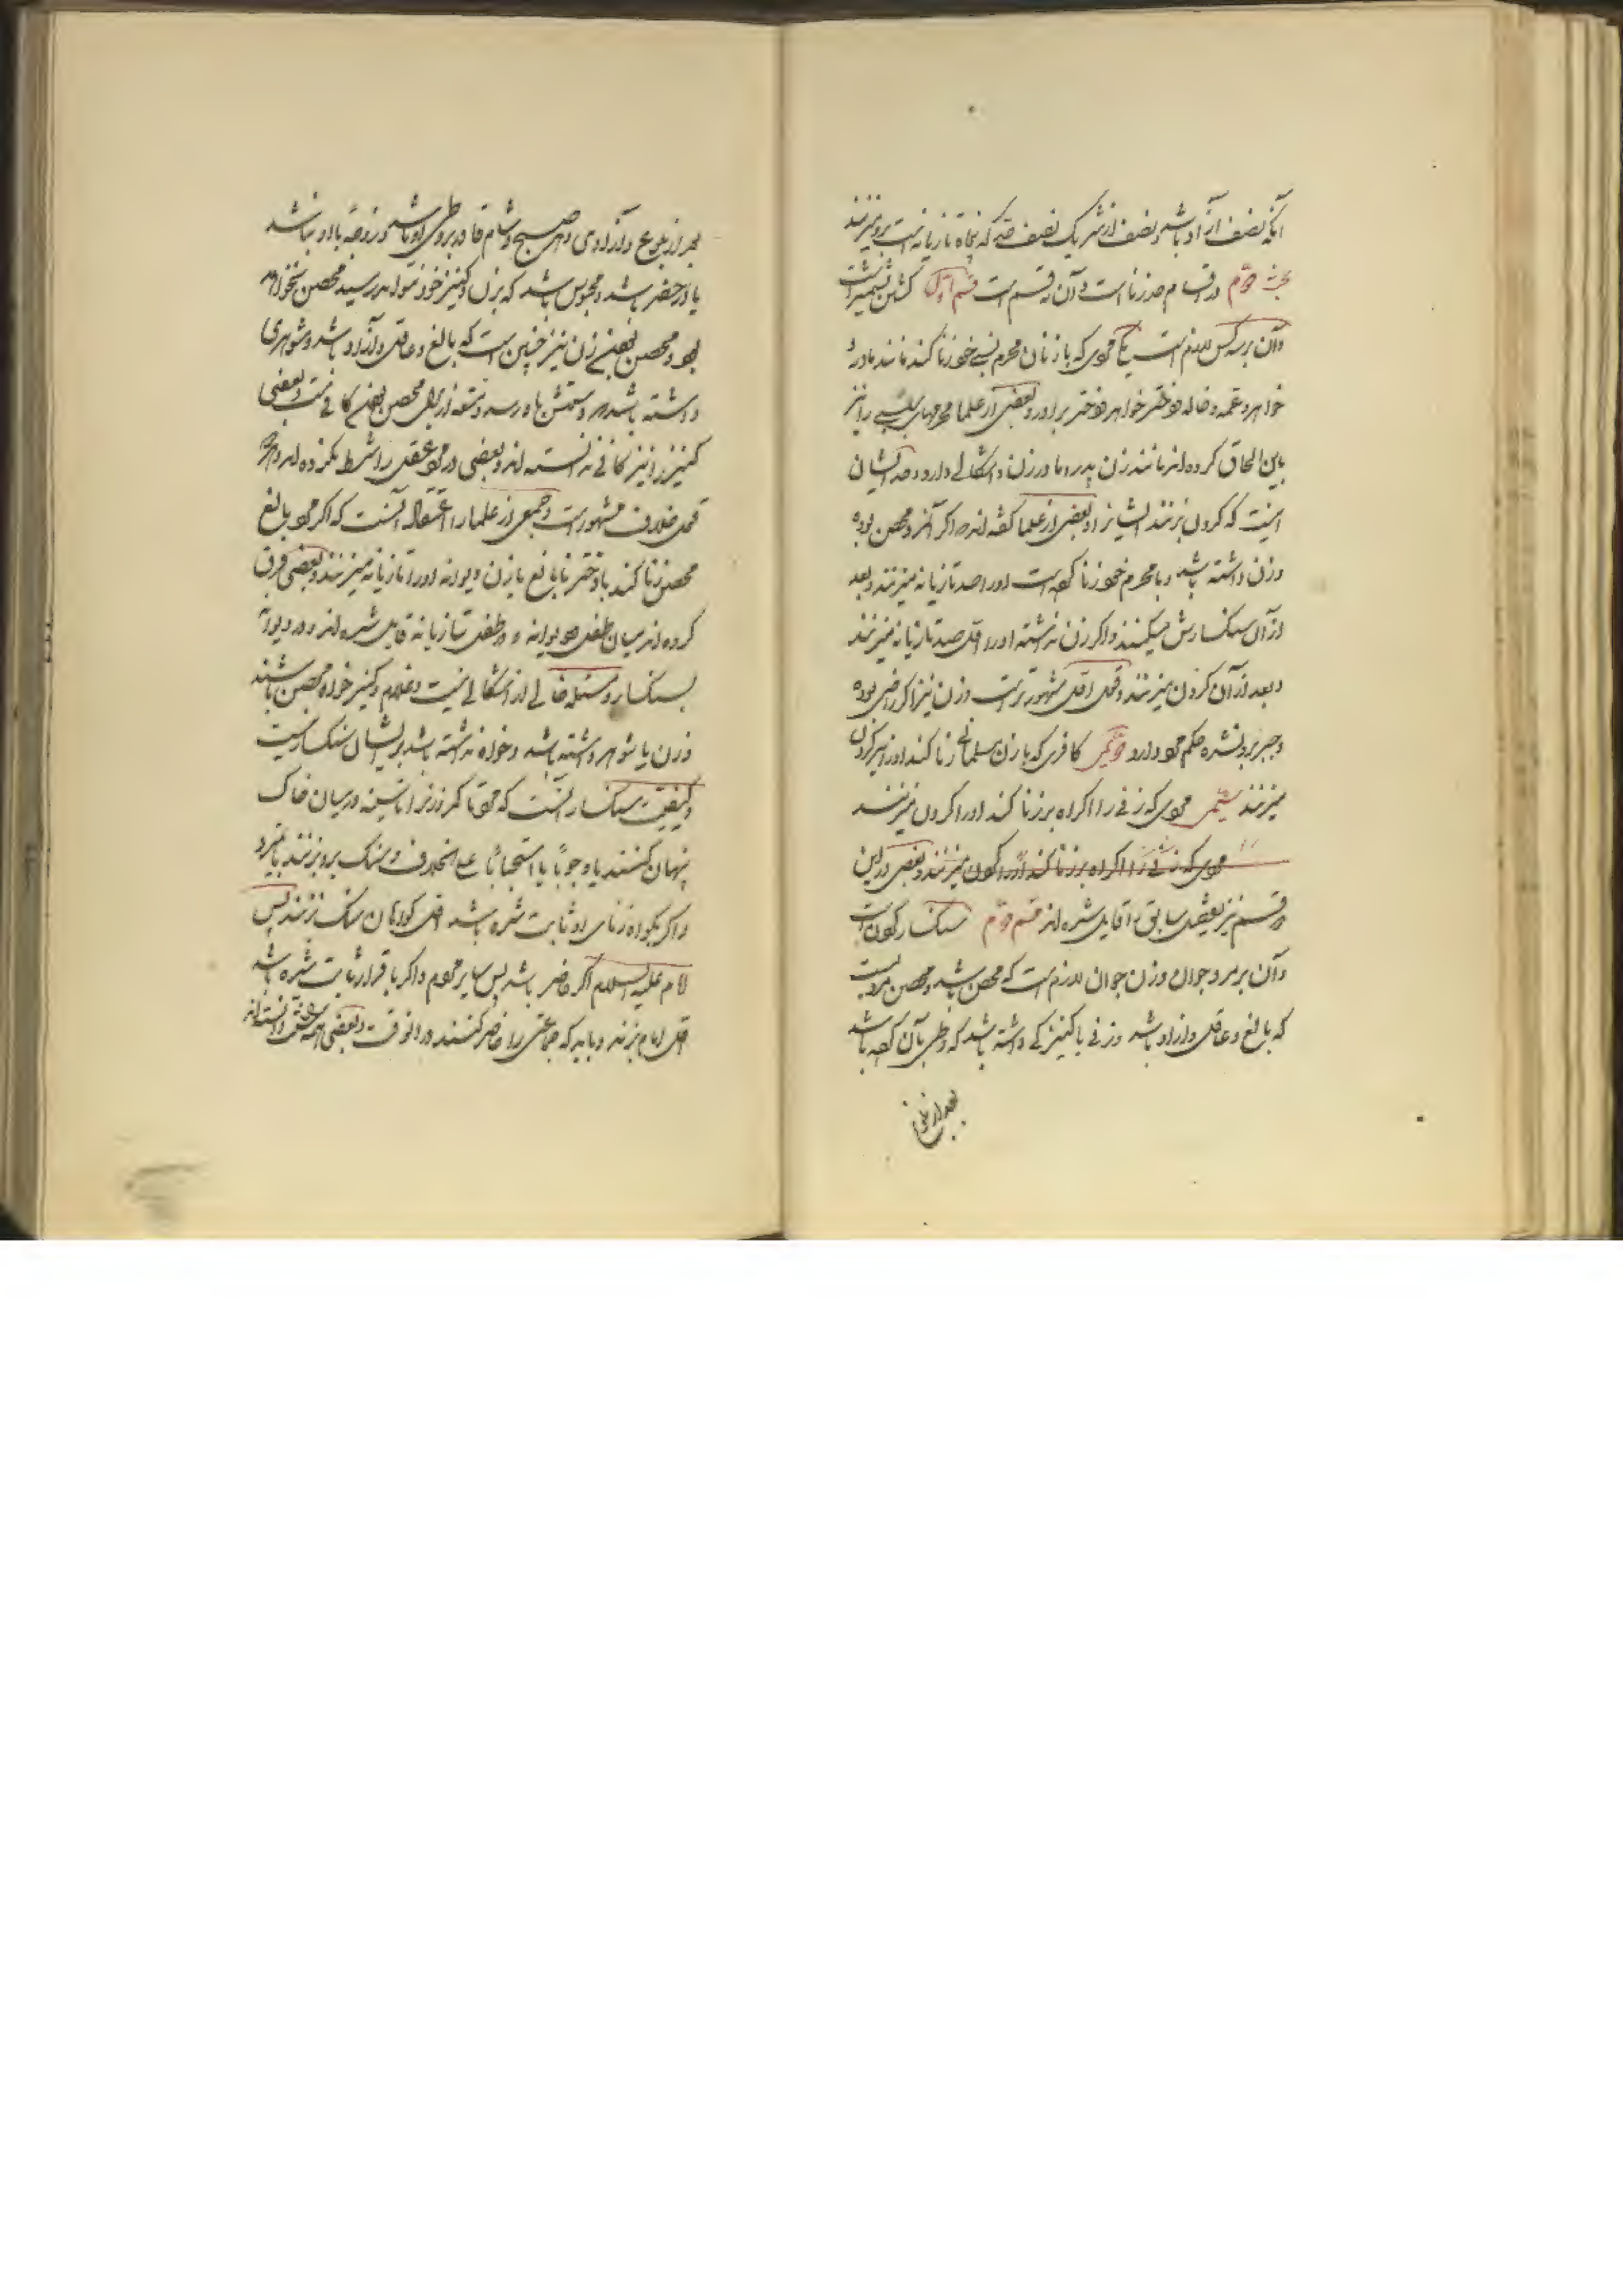 آنکه نصف آزاد باشد و نصف از شریک نصف حد که پنجاه تازیانه است برو میزنند
بحث دوم در اقسام حد زنا است و آن نه قسم است قسم اول کشتن بشمشیر است
و آن بر سه کس لازم است یکی مردی که با زنان محرم نسبی خود زنا کند مانند مادر و
خواهر و عمه و خاله و دختر خواهر و دختر برادر و بعضی از علما محرمهای سببی را نیز
باین الحاق کرده اند مانند زن پدر و مادر زن و اشکالی دارد و حد ایشان
اینست که کردن بزنند ایشانرا و بعضی از علما گفته اند که اگر آنمرد محصن بوده
و زن داشته باشد و با محرم خود زنا کرده است او را صد تازیانه میزنند و بعد
از آن سنکسارش میکنند و اکر زن نداشته او را اول صد تازیانه میزنند
و بعد از آن کردن میزنند و قول اول مشهورتر است و زن نیز اکر راضی بوده
و جبر برو نشده حکم مرد دارد دویم کافری که با زن مسلمانی زنا کند او را نیز کردن
میزنند سیم مردی که زنی را اکراه بر زنا کند او را کردن میزنند
مردی که زنی را اکراه بر زنا کند او را کردن میزنند و بعضی در این
دو قسم نیز بتفصیل سابق قایل شده اند قسم دوم سنکسار کردن است
و آن بر مرد جوان و زن جوان لازم است که محصن باشد و محصن مردیست
که بالغ و عاقل و آزاد باشد و زنی یا کنیزکی داشته باشد که وطی بآن کرده باشد
بعد از بلوغ
بعد از بلوغ و آزادی و هر صبح و شام قادر بر وطی او باشد و زوجه با او نباشد
یا در حضر باشد و محبوس باشد که بزن و کنیز خود نتواند رسید محصن نخواهد
بود و محصن بودن زن نیز چنین است که بالغ و عاقل و آزاد باشد و شوهری
داشته باشد و دستش باو رسد و متعه از برای محصن بودن کافی نیست و بعضی
کنیز را نیز کافی ندانسته اند و بعضی در مرد عقل را شرط نکرده اند و هر دو
قول خلاف مشهور است و جمعی از علما را اعتقاد آنست که اکر مرد بالغ
محصن زنا کند با دختر نابالغ یا زن دیوانه او را تازیانه میزنند و بعضی فرق
کرده اند میان طفل و دیوانه و در طفل بتازیانه قایل شده اند و در دیوانه
بسنکسار و مسئله خالی از اشکالی نیست و غلام و کنیز خواه محصن باشند
و زن یا شوهر داشته باشد و خواه نداشته باشد بر ایشان سنکسار نیست
و کیفیت سنکسار آنست که مرد تا کمر و زنرا تا سینه در میان خاک
پنهان کنند یا وجوبا یا استحبابا علی الخلاف و سنک برو بزنند تا بمیرد
و اکر بکواه زنای او ثابت شده باشد اول کواهان سنک زنند پس
امام علیه السلام اکر حاضر باشد پس سایر مردم و اکر باقرار ثابت شده باشد
اول امام بزند و باید که جماعتی را حاضر کنند در انوقت و بعضی دانسته اند